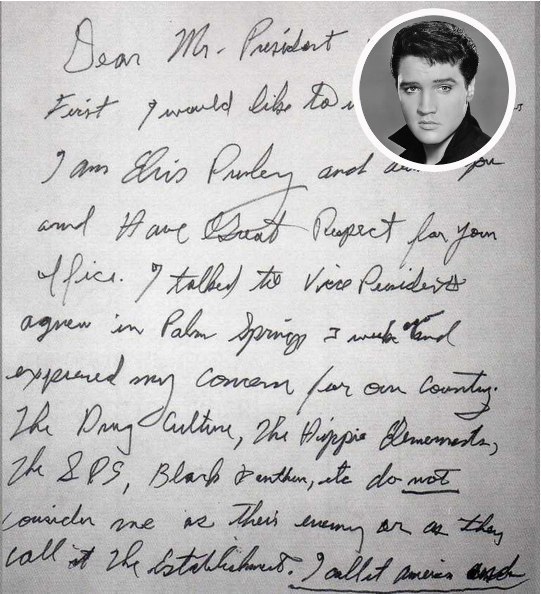 Dear Mr. President
First I would like to
I am Elvis Presley and you
and Have Great Respect for your
office. I talked to Vice President
agnew in Palm Springs 3 weeks ago and
expressed my concern for our country.
The Drug Culture, The Hippie Elements,
The SDS, Black Panthers, etc do not
consider me as their enemy or as they
call it The Establishment. I call it america and